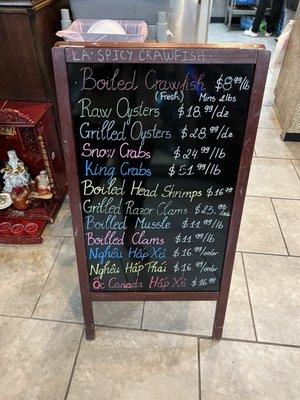 LA SPICY CRAWFISH
Boiled Crawfish $8.99/lb
(Fresh) Mins 2lbs
Raw Oysters $18.99/dz
Grilled Oysters $28.99/dz
Snow Crabs $24.99/lb
King Crabs $51.99/lb
Boiled Head Shrimps $16.99
Grilled Razor Clams $23.99/lb
Boiled Mussle $11.99/lb
Boiled Clams $11.99/lb
Nghêu Hấp Xả $16.99/order
Nghêu Hấp Thái $16.99/order
Ốc Canada Hấp Xả $16.99